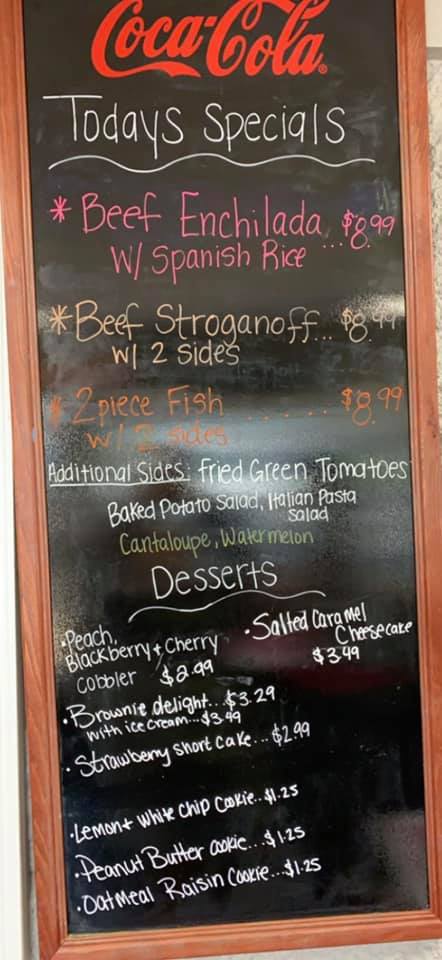 Coca-Cola
Todays Specials
* Beef Enchilada ... $8.99
W/ Spanish Rice
* Beef Stroganoff... $8.99
w/ 2 sides
* 2piece Fish ...... $8.99
w/ 2 sides
Additional Sides: Fried Green Tomatoes
Baked Potato Salad, Italian Pasta
Salad
Cantaloupe, Watermelon
Desserts
• Peach,
Blackberry + Cherry
Cobbler $2.99
• Salted Caramel
Cheesecake
$3.49
• Brownie delight... $3.29
with ice cream...$3.49
• Strawberry short cake...$2.99
• Lemon + White Chip Cookie..$1.25
• Peanut Butter cookie...$1.25
• Oatmeal Raisin Cookie...$1.25